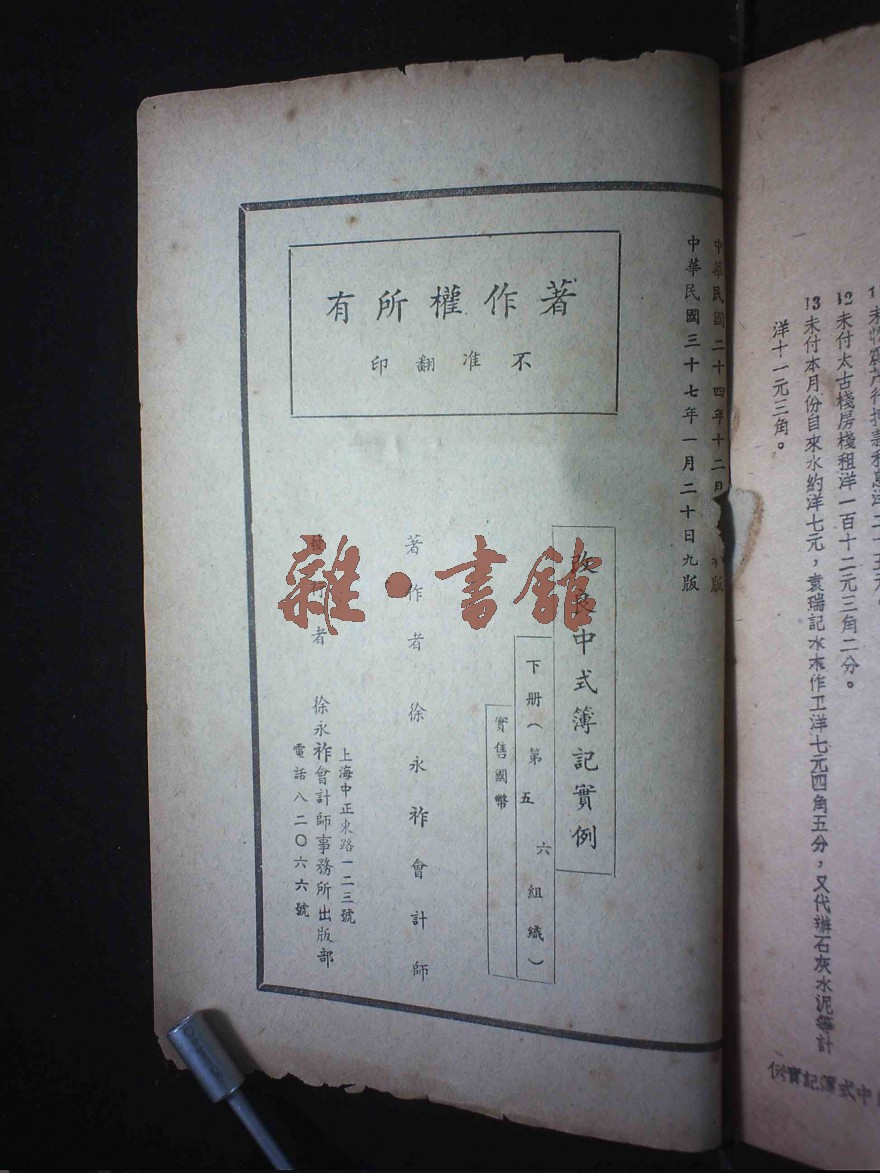 12 未付太古棧房棧租洋一百十二元三角二分。
13 未付本月份自來水約洋七元，袁瑞記水木作工洋七元四角五分，又代辦石灰水泥等計
洋十一元三角。
中式簿記實例
中華民國二十四年十二月 版
中華民國三十七年一月二十日九版
著作權所有
不准翻印
改良中式簿記實例
下册（第五六組織）
實售國幣
著作者 徐永祚會計師
發行者 徐永祚會計師事務所出版部
上海中正東路一二三號
電話八二〇六六號
雜·書館